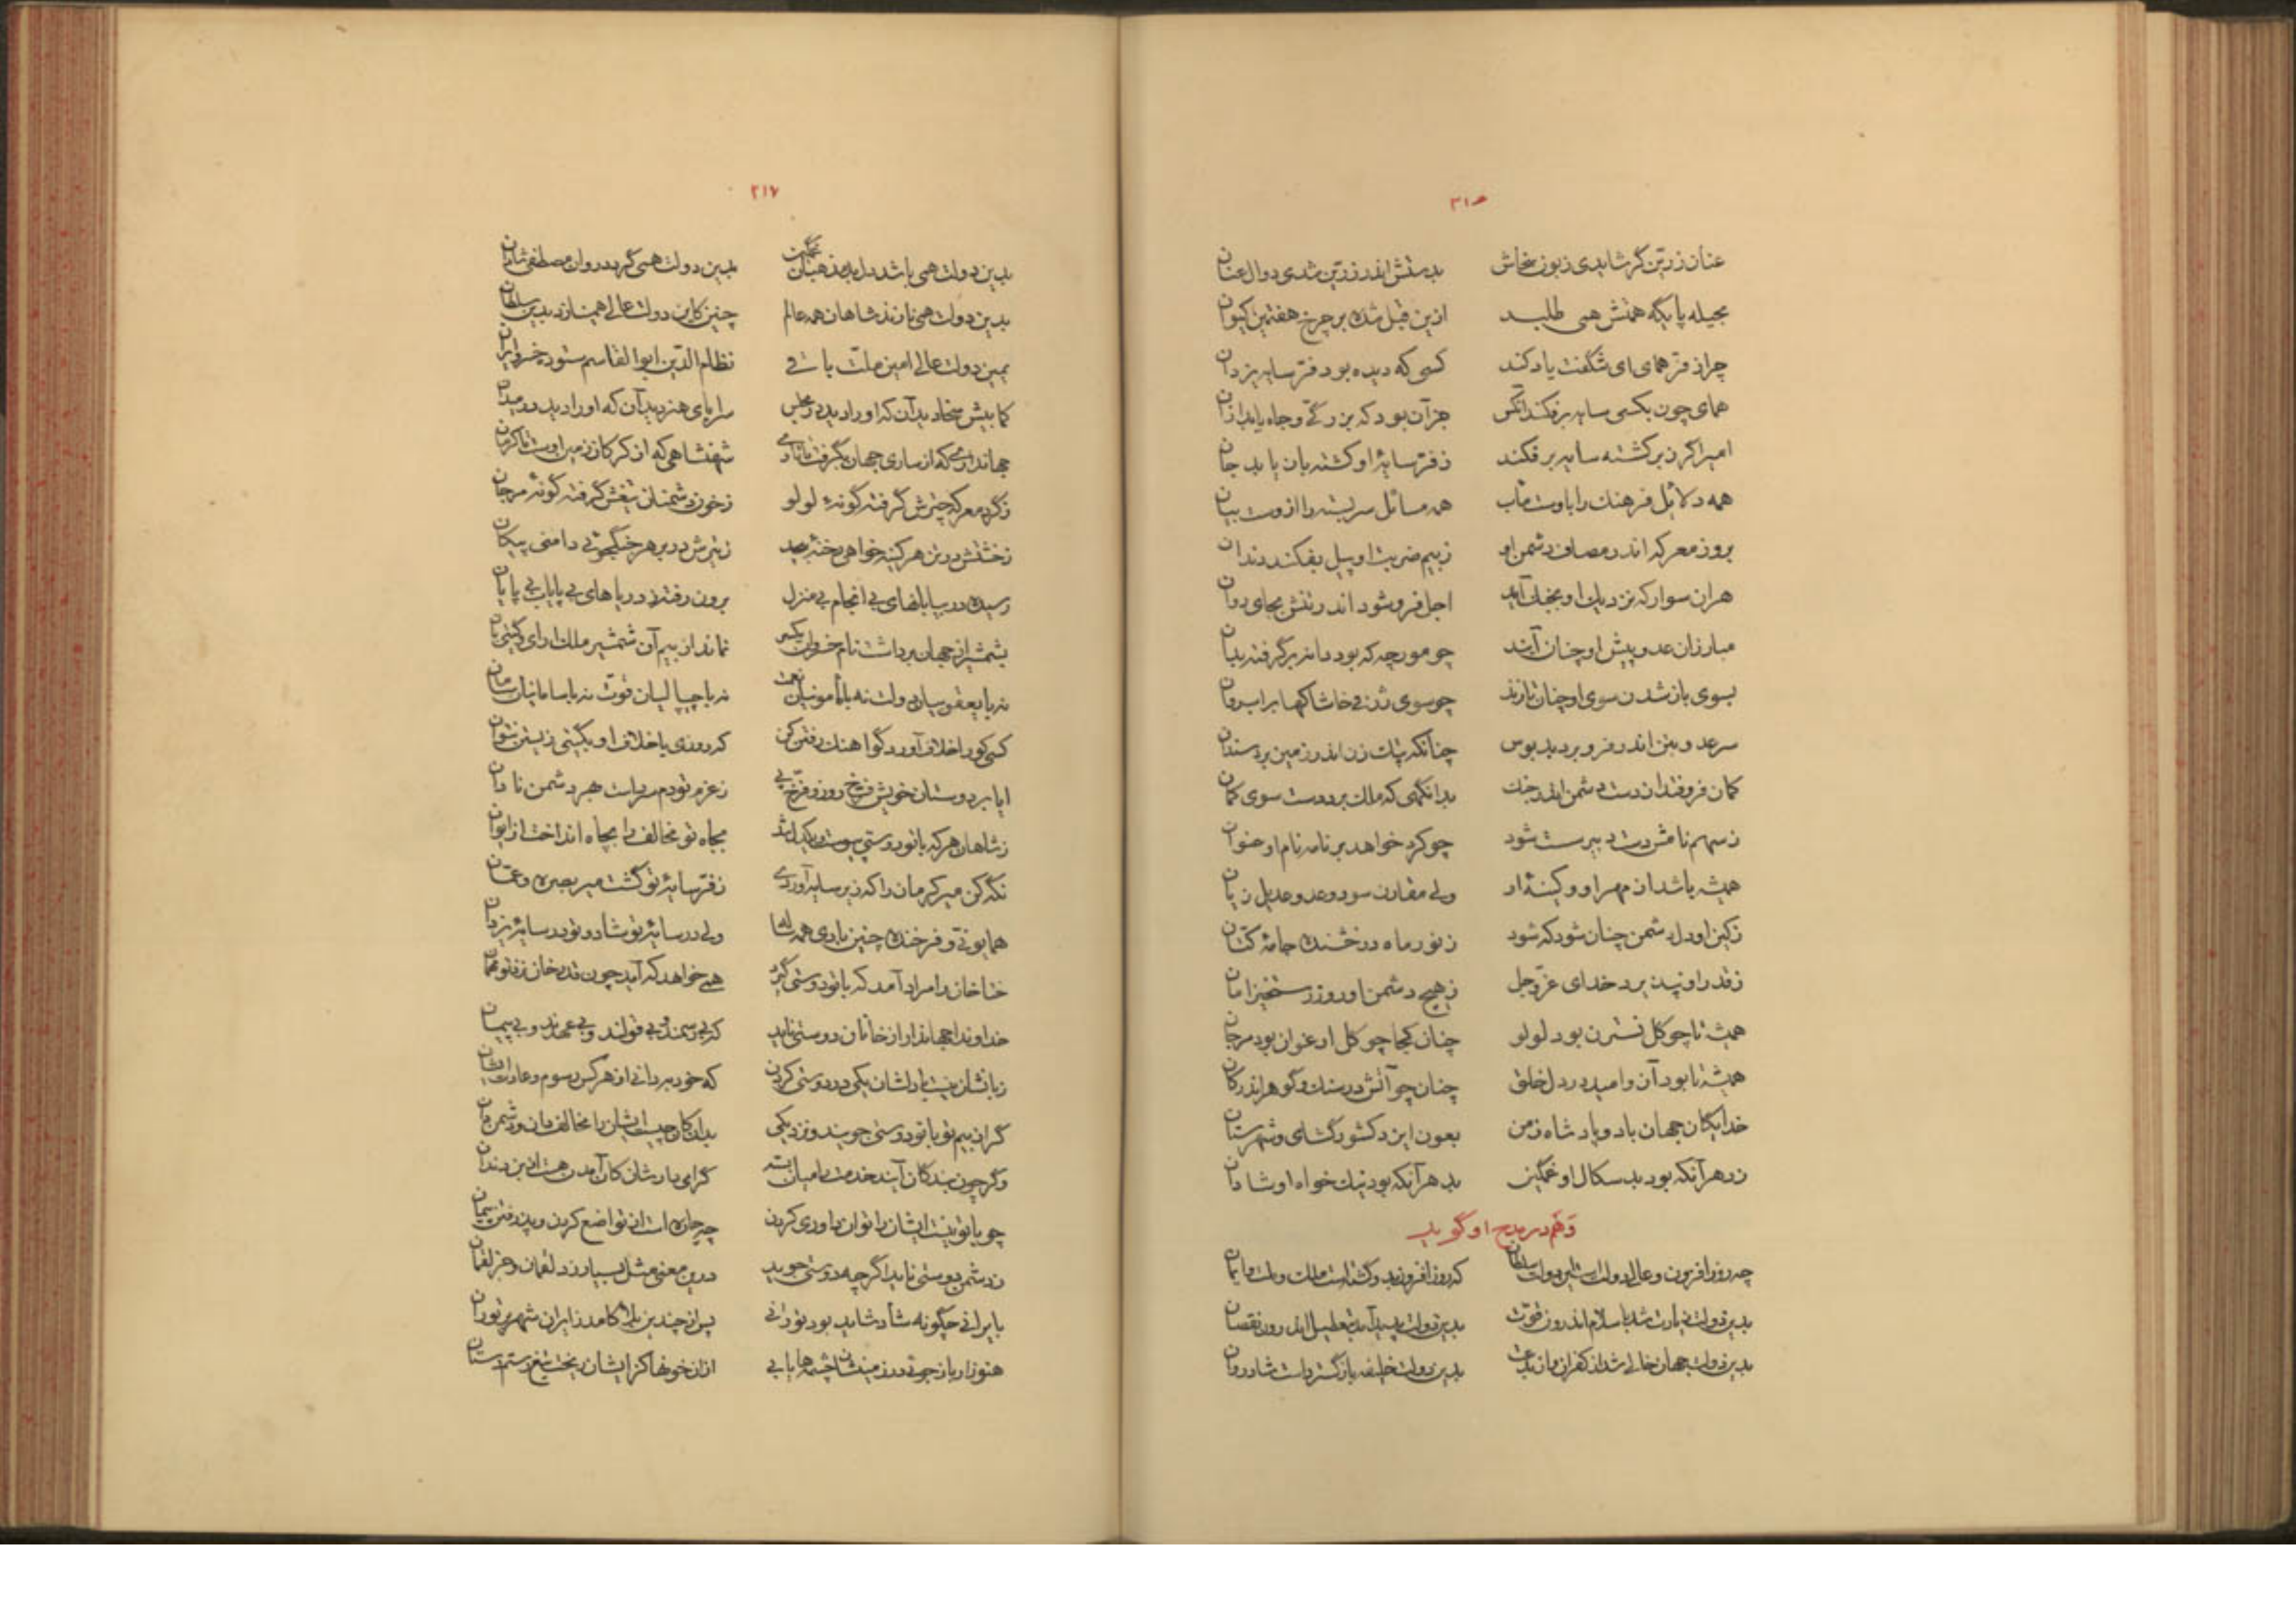 ۳۱۶
عنان زرین گر شایدی زبون سخاش بدستش اندر زرین شدی دوال عنان
بحیله پایگه همتش همی طلبد ازین قبل شده بر چرخ هفتمین کیوان
چرا ز فر همای ای شگفت یاد کند کسی که دیده بود فر سایه یزدان
همای چون بکسی سایه برفکند آنکس جز آن بود که بزرگی و جاه یابد ازان
امیر اگر بر کشته سایه برفکند ز فر سایهٔ او کشته بازیابد جان
همه دلایل فرهنگ را باوست مآب همه مسائل سربسته را ازوست بیان
بروز معرکه اندر مصاف دشمن او ز بیم ضربت او پیل بفکند دندان
هران سوار که نزدیک او بجنگ آید اجل فروشود اندر تنش بجای روان
مبارزان عدو پیش او چنان آیند چو مورچه که بود دانه برگرفته بدان
بسوی باز شدن سوی او چنان تازند چو سوی ژرفی خاشاکها بر آب روان
سر عدو بتن اندر فرو برد بدبوس چنانکه پتک زن اندر زمین برد سندان
کمان فرو فتد از دست دشمن اندر جنگ بدانگهی که ملک برد دست سوی کمان
ز سهم نامش دست دبیر سست شود چو کرد خواهد بر نامه نام او عنوان
همیشه باشد از مهر او و کینهٔ او ولی مقارن سود و عدو عدیل زیان
ز کین او دل دشمن چنان شود که شود ز نور ماه درخشنده جامهٔ کتان
ز قدر او نپذیرد خدای عز و جل ز هیچ دشمن او روز رستخیز امان
همیشه تا چو گل نسترن بود لولو چنان کجا چو گل ارغوان بود مرجان
همیشه تا بود آن وامید در دل خلق چنان چو آتش در سنگ و گوهر اندر کان
خدایگان جهان باد و پادشاه زمن بعون ایزد کشورگشای و شهرستان
زد هر آنکه بود بدسگال او غمگین بد هر آنکه بود نیک خواه او شادان
و هم در مدح او گوید
چه روزافزون و عالی دولتست این دولت سلطان که روز افزون بدو گشتست ملک و ملت و ایمان
بدین دولت زیادت شد باسلام اندرون قوت بدین دولت پدید آمد بتعطیل اندرون نقصان
بدین دولت جهان خالی شد از کفران و از بدعت بدین دولت خلیفه باز گسترداست شادروان
۳۱۷
بدین دولت همی باشد دل بدمذهبان غمگین بدین دولت همی گردد روان مصطفی شادان
بدین دولت همی نازند شاهان همه عالم چنین کاین دولت عالی همینازد بدین سلطان
یمین دولت عالی امین ملت باقی نظام الدین ابوالقاسم ستوده خسرو ایران
کمابیش سخا دید آن که او را دید در مجلس سراپای هنر دید آن که او را دید در میدان
جهانداری که از ساری جهان بگرفت تا باری شهنشاهی که از گرگان زمین اوست تا کرمان
ز گرد معرکه چترش گرفته گونهٔ لولو ز خون دشمنان تیغش گرفته گونهٔ مرجان
ز خشتش در تن هر کینه خواهی رخنهٔ بیحد ز تیرش در بر هر جنگجویی دامنی پیکان
رسیده در بیابانهای بی انجام بی منزل برون رفته ز دریاهای بی پایاب بی پایان
بشمشیر از جهان برداشت نام خسروان یکسر نماند از بیم آن شمشیر ملک آرای و گیتی بان
نه با یعقوبیان دولت نه با مأمونیان نعمت نه با چیپالیان قوت نه با سامانیان سامان
کسی کورا خلاف آورد گو آهنگ رفتن کن که روزی با خلاف او بگیتی زیستن نتوان
ایا بر دوستان خویش فرخ روز و فرخ پی ز عزم تو دمادم بر است هر دشمن نادان
ز شاهان هر که با تو دوستی پیوست و یکدل شد بجاه تو مخالف را بچاه انداخت از ایوان
نگه کن میر کرمان را که زیر سایه آوردی ز فر سایهٔ تو گشت میر بصره و عمان
همایونی و فرخنده چنین بادی همه ساله ولی در سایهٔ تو شاد و تو در سایهٔ یزدان
ختا خان را مراد آمد که با تو دوستی گیرد همی خواهد که آید چون قدرخان نزد تو مهمان
خداوندا جهاندارا ز خانان دوستی ناید که بی رسمند و بی قولند و بی عهدند و بی پیمان
زبانشان نیست با دلشان یکی در دوستی کردن که خود به دانی از هر کس رسوم و عادت ایشان
گر از بیم تو با تو دوستی جویند و نزدیکی بدان کان چیست ایشان را مخالف دان و دشمن دان
وگر چون بندگان آیند خدمت را میان بسته گرامی دارشان کان آمدن هست از بن دندان
چو با تو نیست ایشان را توان داوری کردن چه چاره است از تواضع کردن و پذرفتن پیمان
ز دشمن دوستی ناید اگر چه دوستی جوید درین معنی مثل بسیار زد لقمان و جز لقمان
بایرانی چگونه شاد شاید بود تورانی پس از چندین بلا کامد ز ایران شهر بر توران
هنوز ار باز جویی در زمینشان چشمها یابی ازان خونها کز ایشان ریخت تیغ رستم دستان